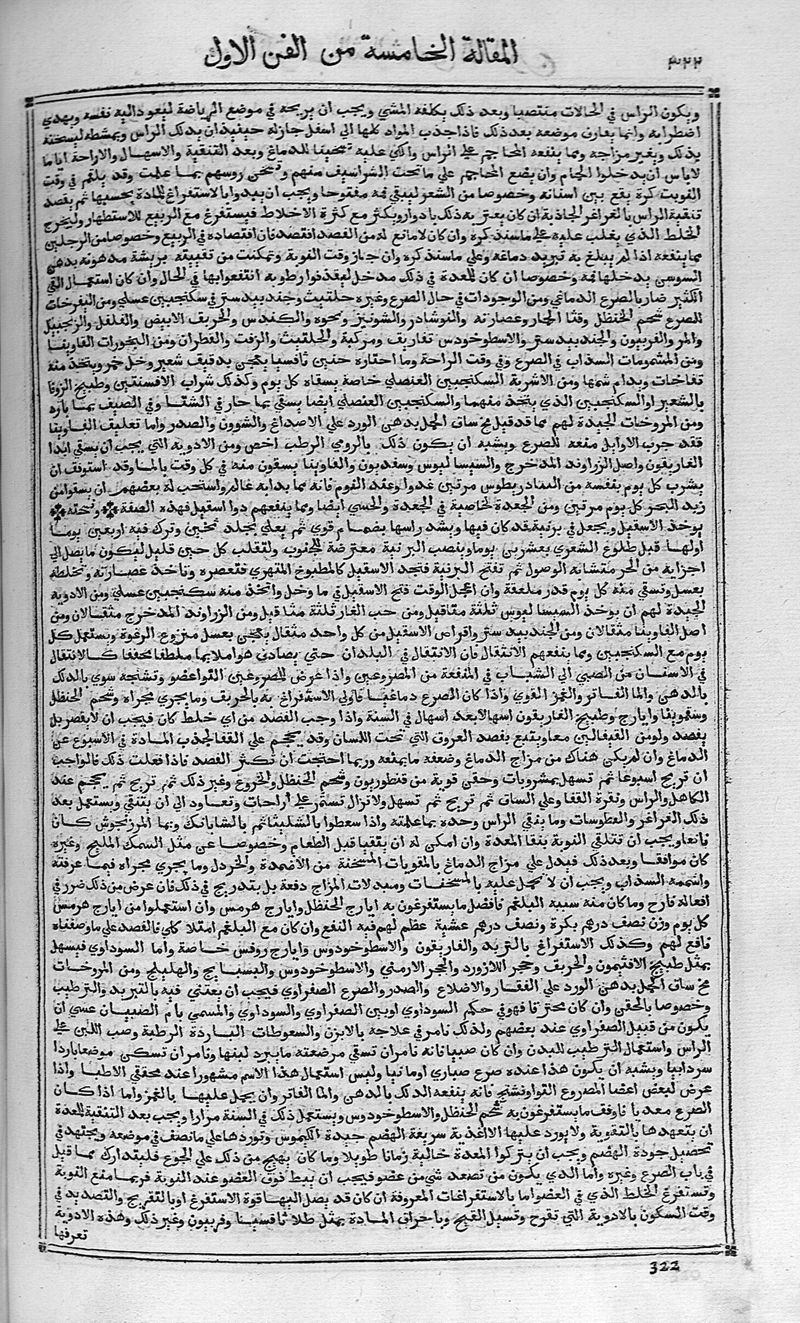 ٣٢٢
المقالة الخامسة من الفن الاول
ويكون الراس في الحالات منتصبا وبعد ذلك يكلفه المشي ويجب ان يريحه في موضع الرياضة ليعود اليه نفسه ويهدي
اضطرابه وانما يعاون موضعه بعد ذلك فاذا جذب المواد كلها الي اسفل جاز له حينيذ ان يدلك الراس ويمشطه ليسخنه
بذلك ويغير مزاجه ومما ينفعه المحاجم علي الراس والكي عليه تسخينا للدماغ وبعد التنقية والاسهال والاراحة اياما
لا باس ان يدخلوا الحمام وان يضع المحاجم علي ما تحت الشراسيف منهم وتسخن روسهم بما علمت وقد يلقم في وقت
النوبت كرة يقع بين اسنانه وخصوصا من الشعر ليبقي فمه مفتوحا ويجب ان يبدوا بالاستفراغ للمادة بحسبها ثم يقصد
تنقية الراس بالغراغر الجاذبة ان كان يعتريه ذلك بادوار ويكثر مع كثرة الاخلاط فيستفرغ مع الربيع للاستظهار وليخرج
الخلط الذي يغلب عليه علي ما سنذكره وان كان لا مانع له من الفصد افتصد فان افتصاده في الربيع وخصوصا من الرجلين
مما ينفعه اذا لم يبلغ به تبريد دماغه وعلي ما سنذكره وان جاز وقت النوبة وتمكنت من تقييه بريشة مدهونة بدهن
السوسن يدخلها فمه وخصوصا ان كان للمعدة في ذلك مدخل ليقذفوا رطوبة انتفعوا بها في الحال وان كان استعمال القي
الكثير ضارا بالصرع الدماغي ومن الوجورات في حال الصرع وغيره حلتيت وجندبيدستر في سكنجبين عسلي ومن النفوخات
للصرع شحم الحنظل وقثا الحمار وعصارته والنوشادر والشونيز ونحوه والكندس والخربق الابيض والفلفل والزنجبيل
والمر والفربيون والجندبيدستر والاسطوخودس تفاريق ومركبة والحلتيث والزفت والقطران ومن البخورات الفاوينا
ومن المشمومات السذاب في الصرع وفي وقت الراحة وما اختاره حنين ثافسيا يعجن بدقيق شعير وخل خمر ويتخذ منه
تفاحات ويدام شمها ومن الاشربة السكنجبين العنصلي خاصة يسقاه كل يوم وكذلك شراب الافسنتين وطبيخ الزوفا
بالشعير او السكنجبين الذي يتخذ منهما والسكنجبين العنصلي ايضا يسقي بما حار في الشتا وفي الصيف بما بارد
ومن المروخات الجيدة لهم مما قد قيل مخ ساق الجمل بدهن الورد علي الاصداغ والشوون والصدر واما تعليق الفاوينا
فقد جرب الاوايل منفعه للصرع ويشبه ان يكون ذلك بالرومي الرطب اخص ومن الادوية التي يجب ان يسقي ابدا
الغاريقون واصل الزراوند المدحرج والسيسا ليوس وسفنديون والفاوينا يسقون منه في كل وقت بالما وقد استوفق ان
يشرب كل يوم بنفسه من المثاذريطوس مرتين غدوا وعند النوم فانه مما يداينه غالم واستحب له بعضهم ان يسقوا من
زبد البحر كل يوم مرتين ومن الجعدة لخاصية في الجعدة والحسي ايضا ومما ينفعهم دوا اسقيل فهذه الصفة ونسخته
يوخذ الاسقيل ويجعل في برنية قد كان فيها ويشد راسها بصمام قوي ثم يعلي بجلد ثخين وتترك فيه اربعين يوما
اولها قبل طلوع الشعري بعشرين يوما وينصب البرنية معترضة للجنوب ولتقلب كل حين قليل ليكون ما يصل الي
اجزاية من الحر متشابه الوصول ثم تفتح البرنية فتجد الاسقيل كالمطبوخ المتهري فتعصره وتاخذ عصارته وتخلطه
بعسل وتسقي منه كل يوم قدر ملعقة وان اعجل الوقت فتح الاسقيل في ما وخل واتخذ منه سكنجبين عسلي ومن الادوية
الجيدة لهم ان يوخذ السيسا ليوس ثلثة مثاقيل ومن حب الغار ثلثة مثاقيل ومن الزراوند المدحرج مثقالان ومن
اصل الفاوينا مثقالان ومن الجندبيدستر واقراص الاسقيل من كل واحد مثقال يعجن بعسل منزوع الرغوة ويستعمل كل
يوم مع السكنجبين ومما ينفعهم الانتقال فان الانتقال في البلدان حتي يصادف هوا ملايما ملطفا مجففا كالانتقال
في الاسنان من الصبي الي الشباب في المنفعة من المصروعين واذا عرض للمصروعين التوا عضو وتشنجه سوي بالدلك
بالدهن والما الفاتر والغمز القوي واذا كان الصرع دماغيا فاولي الاستفراغ به بالخربق وما يجري مجراه وشحم الحنظل
وسقمونيا وايارج وطبيخ الغاريقون اسهالا بعد اسهال في السنة واذا وجب الفصد من اي خلط كان فيجب ان لا يقصر بل
يفصد ولو من القيفالين معا ويتبع بفصد العروق التي تحت اللسان وقد يحجم علي القفا لجذب المادة في الاسبوع عن
الدماغ وان لم يكن هناك من مزاج الدماغ وضعفه ما يمنعه وربما احتجت ان تكثر الفصد فاذا فعلت ذلك فالواجب
ان تريح اسبوعا ثم تسهل بمشروبات وحقن قوية من قنطوريون وشحم الحنظل والخروع وغير ذلك ثم تريح ثم يحجم عند
الكاهل والراس ونقرة القفا وعلي الساق ثم تريح ثم تسهل ولا تزال تستمر علي اراحات وتعاود الي ان ينتقي ويستعمل بعد
ذلك الغراغر والعطوسات وما ينقي الراس وحده بما علمته واذا سعطوا بالشليثا ثم بالشابانك وبما المرزنجوش كان
نافعا ويجب ان تتلقي النوبة بنقا المعدة وان امكن له ان يتقيا قبل الطعام وخصوصا عن مثل السمك المليح وغيره
كان موافقا وبعد ذلك فيدل علي مزاج الدماغ بالمقويات المسخنة من الاضمدة والخردل وما يجري مجراه فيما عرفته
واشممه السذاب ويجب ان لا تحمل عليه بالمسخنات ومبدلات المزاج دفعة بل بتدريج في ذلك فان عرض من ذلك ضرر في
افعاله فارح وما كان منه سببه البلغم فافضل ما يستفرغون به ايارج الحنظل وايارج هرمس وان استعملوا من ايارج هرمس
كل يوم وزن نصف درهم بكرة ونصف درهم عشية عظم لهم فيه النفع وان كان مع البلغم امتلا كاي فالفصد علي ما وصفناه
نافع لهم وكذلك الاستفراغ بالتربد والغاريقون والاسطوخودوس وايارج روفس خاصة واما السوداوي فيسهل
بمثل طبيخ الافثيمون والخربق وحجر اللازورد والحجر الارمني والاسطوخودوس والبسبايج والهليلج ومن المروخات
مخ ساق الجمل بدهن الورد علي الفقار والاضلاع والصدر والصرع الصفراوي فيجب ان يعتني فيه بالتبريد والترطيب
وخصوصا بالحقن وان كان محترقا فهو في حكم السوداوي او بين الصفراوي والسوداوي والمسمي بام الصبيان عسي ان
يكون من قبيل الصفراوي عند بعضهم ولذلك نامر في علاجه بالابزن والسعوطات الباردة الرطبة وصب اللبن علي
الراس واستعمال الترطيب للبدن وان كان صبيا فانه نامران تسقي مرضعته ما يبرد لبنها ونامران تسكن موضعا باردا
سردابيا ويشبه ان يكون هذا عنده صرع صباري او مانيا وليس استعمال هذا الاسم مشهورا عند محققي الاطبا واذا
عرض لبعض اعضا المصروع التوا وتشنج فانه ينفعه الدلك بالدهن والما الفاتر وان يحمل عليها بالغمز واما اذا كان
الصرع معديا فاوفق ما يستفرغون به شحم الحنظل والاسطوخودوس ويستعمل ذلك في السنة مرارا ويجب بعد التنقية للمعدة
ان يتعهدها بالتقوية ولا يورد عليها الا اغذية سريعة الهضم جيدة الكيموس وتوردها علي ما نصف في موضعه ويجتهد في
تحصيل جودة الهضم ويجب ان يتركوا المعدة خالية زمانا طويلا وما كان يهيج من ذلك علي الجوع فليتدارك مما قيل
في باب الصرع وغيره واما الذي يكون من تصعد شي من عضو فيجب ان يربط فوق العضو عند النوبة فربما منع النوبة
وتستفرغ الخلط الذي في العضو اما بالاستفراغات المعروفة ان كان قد يصل اليها قوة الاستفراغ او بالتقريح والتصديد في
وقت السكون بالادوية التي تقرح وتسيل القيح وباحراق المادة بمثل طلا ثافسيا وفربيون وغير ذلك وهذه الادوية
تعرفها
322